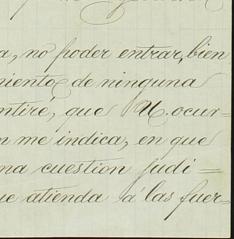 a, no poder entrar, bien
miento de ninguna
entiré, que U. ocur-
n me indica, en que
na cuestion judi=
ue atienda á las fuer-